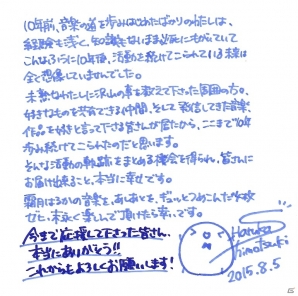 10年前、音楽の道を歩みはじめたばかりのわたしは、
経験も浅く、知識もないまま必死にもがいていて
こんなふうに10年後、活動を続けてこられている未来は
全く想像していませんでした。
未熟なわたしに沢山の事を教えて下さった周囲の方。
好きなものを共有できる仲間、そして発信してきた音楽、
作品を好きと言って下さる皆さんが居たから、ここまで10年
歩み続けてこられたのだと思います。
そんな活動の軌跡をまとめる機会を得られ、皆さんに
お届け出来ること、本当に幸せです。
霜月はるかの音楽を、あしあとを、ぎゅっとつめこんだ5枚
ぜひ、末永く楽しんで頂けたら幸いです。
今まで応援して下さった皆さん、
本当にありがとう!!
これからもよろしくお願いします!
Haruka
Shimotsuki
2015.8.5